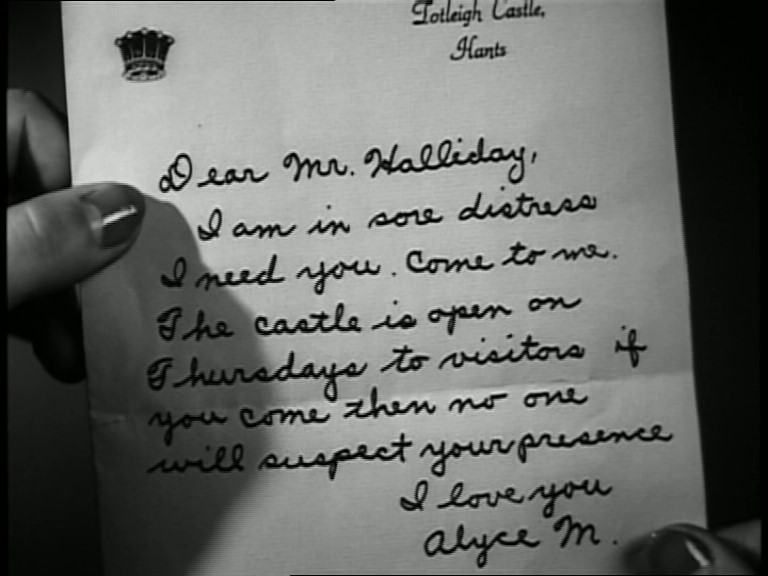 Totleigh Castle,
Hants
Dear Mr. Halliday,
I am in sore distress
I need you. Come to me.
The castle is open on
Thursdays to visitors if
you come then no one
will suspect your presence
I love you
Alyce M.